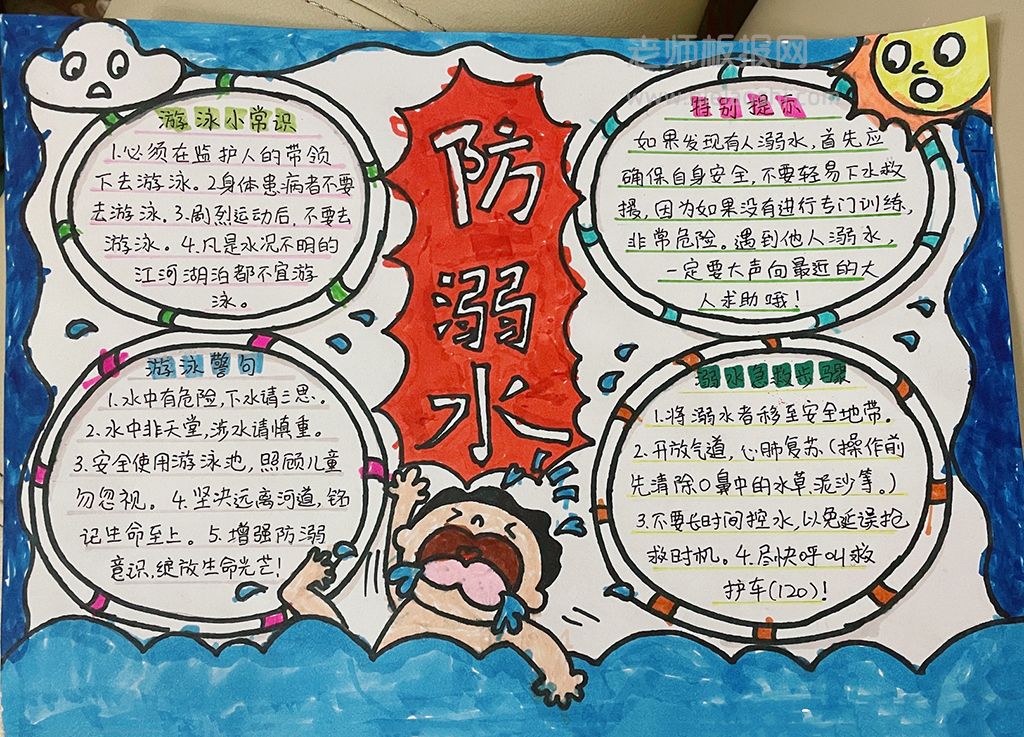 老师板报网
防溺水
游泳小常识
1.必须在监护人的带领
下去游泳。2身体患病者不要
去游泳。3.剧烈运动后,不要去
游泳。4.凡是水况不明的
江河湖泊都不宜游
泳。
特别提示
如果发现有人溺水,首先应
确保自身安全,不要轻易下水救
援,因为如果没有进行专门训练,
非常危险。遇到他人溺水,
一定要大声向最近的大
人求助哦!
游泳警句
1.水中有危险,下水请三思。
2.水中非天堂,涉水请慎重。
3.安全使用游泳池,照顾儿童
勿忽视。4.坚决远离河道,铭
记生命至上。5.增强防溺
意识,绽放生命光芒!
溺水急救步骤
1.将溺水者移至安全地带。
2.开放气道,心肺复苏(操作前
先清除口鼻中的水草泥沙等。)
3.不要长时间控水,以免延误抢
救时机。4.尽快呼叫救
护车(120)!